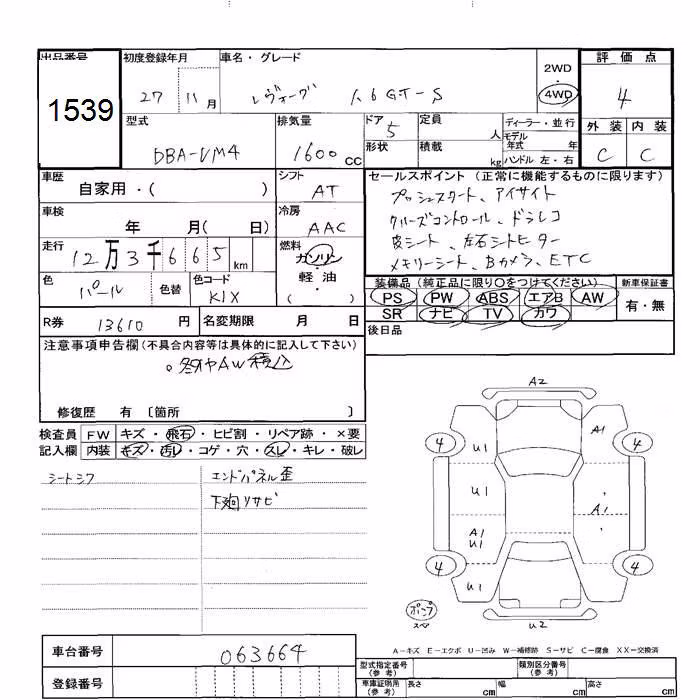 出品番号
1539
初度登録年月
27 11月
車名・グレード
レヴォーグ 1.6GT-S
2WD
4WD
評価点
4
型式
DBA-VM4
排気量
1600cc
ドア
5
形状
定員 人
積載 kg
ディーラー・並行
モデル年式 年
ハンドル 左・右
外装 内装
C C
車歴
自家用・( )
シフト
AT
セールスポイント (正常に機能するものに限ります)
プッシュスタート、アイサイト
クルーズコントロール、ドラレコ
皮シート、左右シートヒーター
メモリーシート、Bカメラ、ETC
車検
年 月( 日)
冷房
AAC
走行
12万3千665km
燃料
ガソリン・軽油・( )
色
パール
色替
色コード
K1X
装備品 (純正品に限り○をつけてください)
PS PW ABS エアB AW
SR ナビ TV カワ
新車保証書
有・無
R券 13610円
名変期限 月 日
後日品
注意事項申告欄(不具合内容等は具体的に記入して下さい)
。冬タイヤAW積込
修復歴 有 〔箇所 〕
検査員記入欄
FW キズ・飛石・ヒビ割・リペア跡・×要
内装 キズ・汚レ・コゲ・穴・スレ・キレ・破レ
シートシワ
エンドパネル歪
下廻りサビ
A2
4 U1 A1 4
U1 A1
A1
U1
4 U1 4
U2
ポンプ
スペア
A-キズ E-エクボ U-凹み W-補修跡 S-サビ C-腐食 XX-交換済
車台番号 063664
登録番号
型式指定番号(参考)
類別区分番号(参考)
車庫証明用(参考) 長さ cm 幅 cm 高さ cm